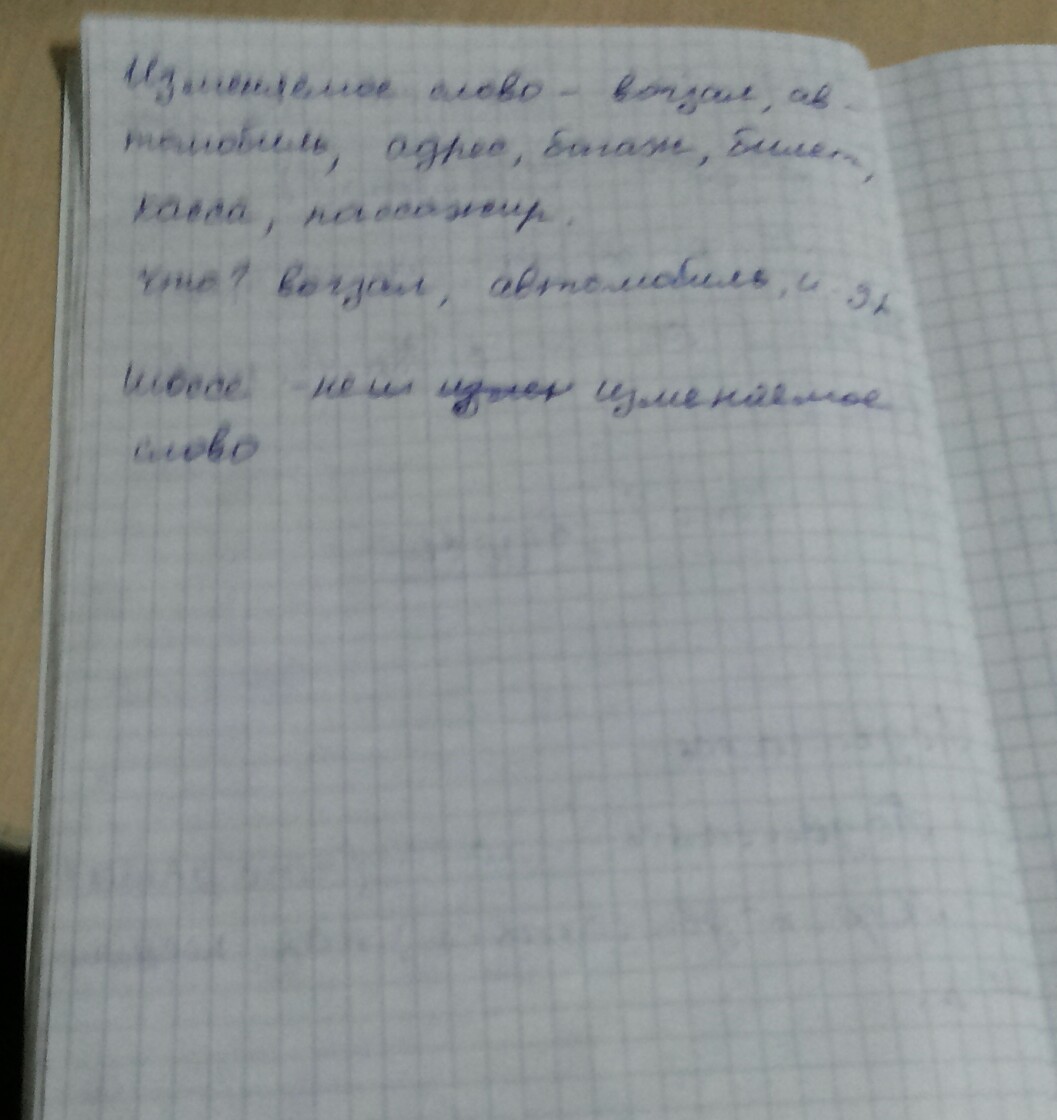 Изменяемое слово - вокзал, ав-
томобиль, адрес, багаж, билет,
касса, пассажир.
Что? вокзал, автомобиль, и др
Шоссе - не изменяемое
слово